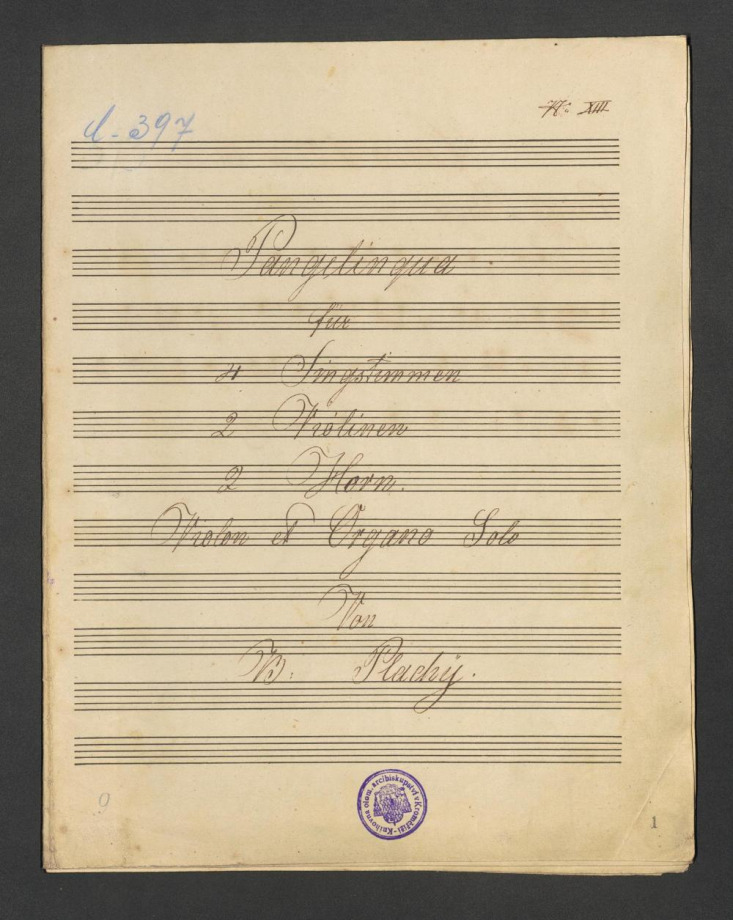 A-397
No: XIII
Pangelingua
für
4 Singstimmen
2 Violinen
2 Horn.
Violon et Organo Solo
Von
W: Plachÿ.
Knihovna olom. arcibiskupství v Kroměříži
0
1